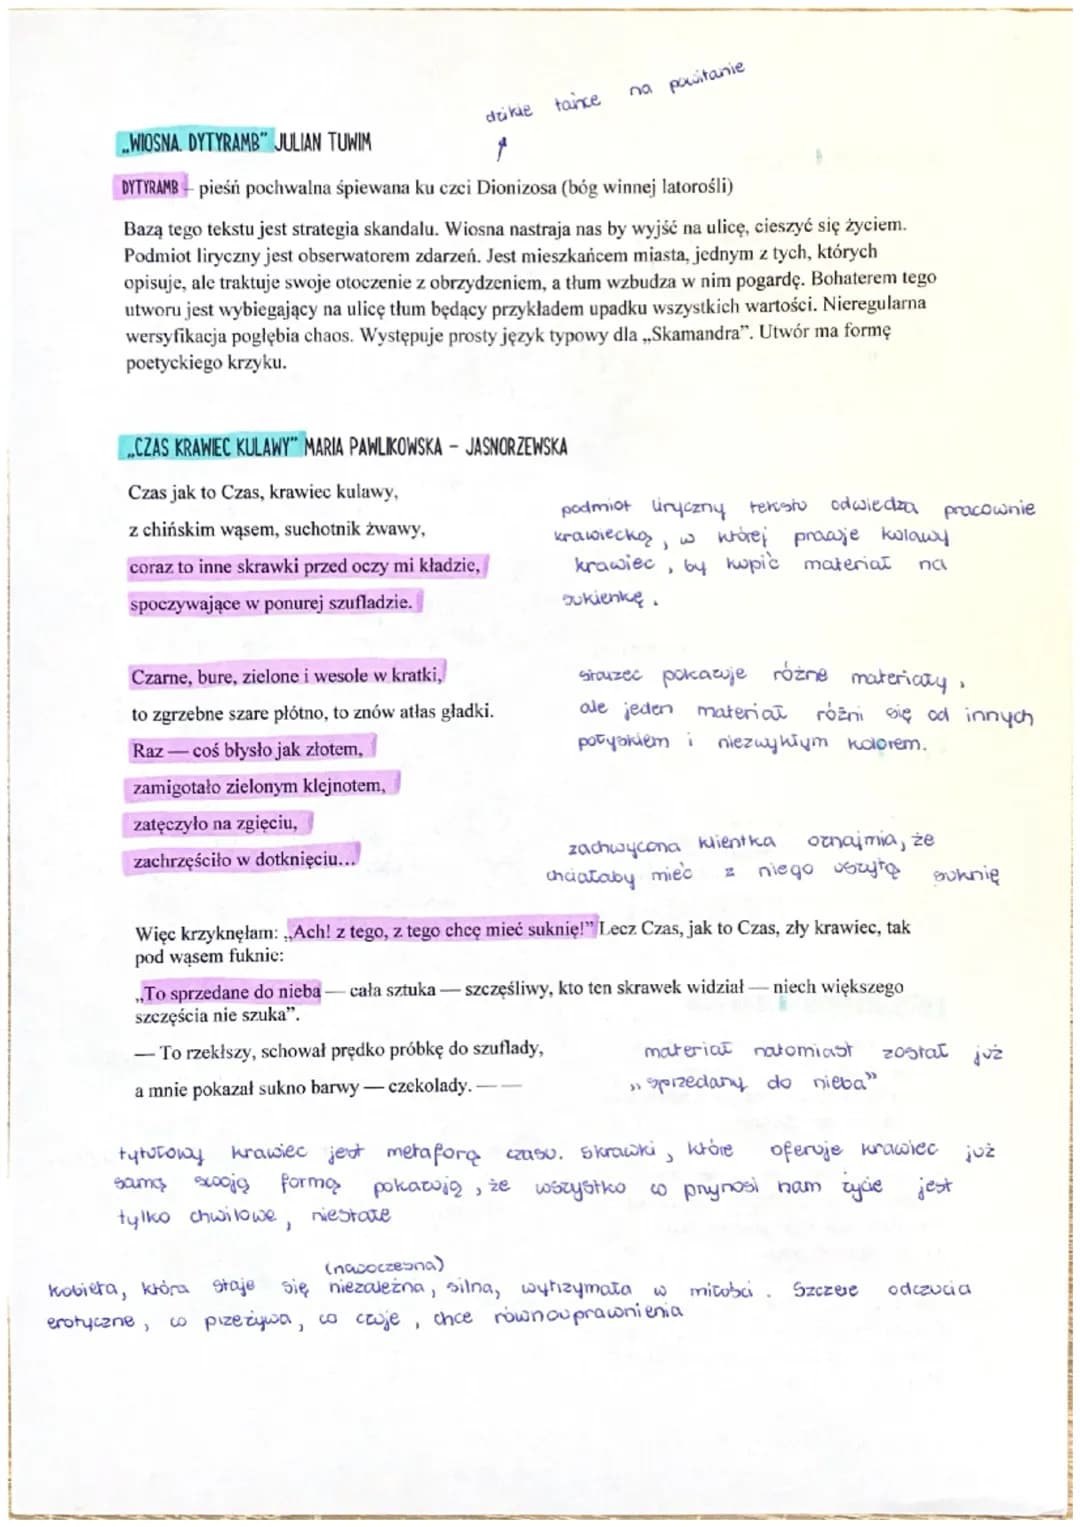 dzikie tańce na powitanie
„WIOSNA. DYTYRAMB" JULIAN TUWIM
DYTYRAMB – pieśń pochwalna śpiewana ku czci Dionizosa (bóg winnej latorośli)
Bazą tego tekstu jest strategia skandalu. Wiosna nastraja nas by wyjść na ulicę, cieszyć się życiem.
Podmiot liryczny jest obserwatorem zdarzeń. Jest mieszkańcem miasta, jednym z tych, których
opisuje, ale traktuje swoje otoczenie z obrzydzeniem, a tłum wzbudza w nim pogardę. Bohaterem tego
utworu jest wybiegający na ulicę tłum będący przykładem upadku wszystkich wartości. Nieregularna
wersyfikacja pogłębia chaos. Występuje prosty język typowy dla „Skamandra". Utwór ma formę
poetyckiego krzyku.
„CZAS KRAWIEC KULAWY" MARIA PAWLIKOWSKA – JASNORZEWSKA
Czas jak to Czas, krawiec kulawy,
z chińskim wąsem, suchotnik żwawy,
coraz to inne skrawki przed oczy mi kładzie,
spoczywające w ponurej szufladzie.
podmiot liryczny tekstu odwiedza pracownie
krawiecką, w której pracuje kulawy
krawiec, by kupić materiał na
sukienkę.
Czarne, bure, zielone i wesołe w kratki,
to zgrzebne szare płótno, to znów atłas gładki.
Raz — coś błysło jak złotem,
zamigotało zielonym klejnotem,
zatęczyło na zgięciu,
zachrzęściło w dotknięciu...
starzec pokazuje różne materiały,
ale jeden materiał różni się od innych
połyskiem i niezwykłym kolorem.
zachwycona klientka oznajmia, że
chciałaby mieć z niego uszytą suknię
Więc krzyknęłam: „Ach! z tego, z tego chcę mieć suknię!" Lecz Czas, jak to Czas, zły krawiec, tak
pod wąsem fuknie:
„To sprzedane do nieba — cała sztuka — szczęśliwy, kto ten skrawek widział — niech większego
szczęścia nie szuka".
— To rzekłszy, schował prędko próbkę do szuflady,
a mnie pokazał sukno barwy — czekolady. — —
materiał natomiast został już
„sprzedany do nieba"
tytułowy krawiec jest metaforą czasu. Skrawki, które oferuje krawiec już
samą swoją formą pokazują, że wszystko co przynosi nam życie jest
tylko chwilowe, niestałe
(nowoczesna)
kobieta, która staje się niezależna, silna, wytrzymała w miłości. Szczere odczucia
erotyczne, co przeżywa, co czuje, chce równouprawnienia